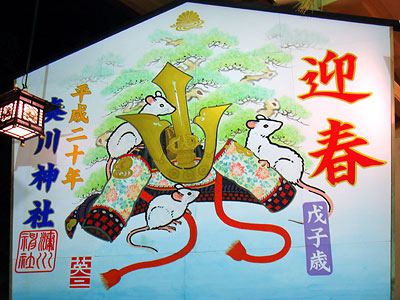 迎春
戊子歳
平成二十年
湊川神社
英二